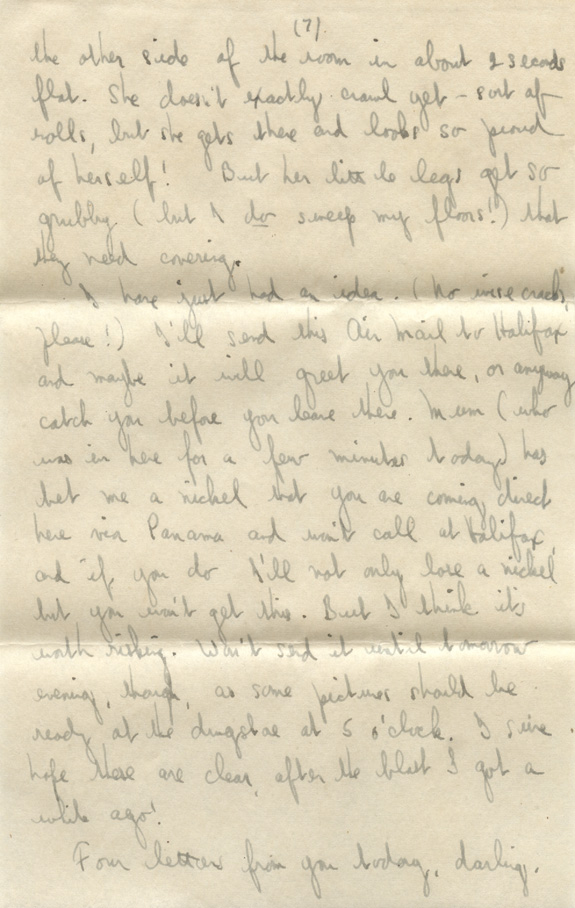 (7)
the other side of the room in about 2 seconds
flat. She doesn't exactly crawl yet – sort of
rolls, but she gets there and looks so proud
of herself! But her little legs get so
grubby (but I do sweep my floors!) that
they need covering.
I have just had an idea. (No wise cracks,
please!) I'll send this Air Mail to Halifax
and maybe it will greet you there, or anyway
catch you before you leave there. Mum (who
was in here for a few minutes today) has
bet me a nickel that you are coming direct
here via Panama and won't call at Halifax,
and if you do I'll not only lose a nickel
but you won't get this. But I think it's
worth risking. Won't send it until tomorrow
evening, though, as some pictures should be
ready at the drugstore at 5 o'clock. I sure
hope these are clear, after the blast I got a
while ago!
Four letters from you today, darling.